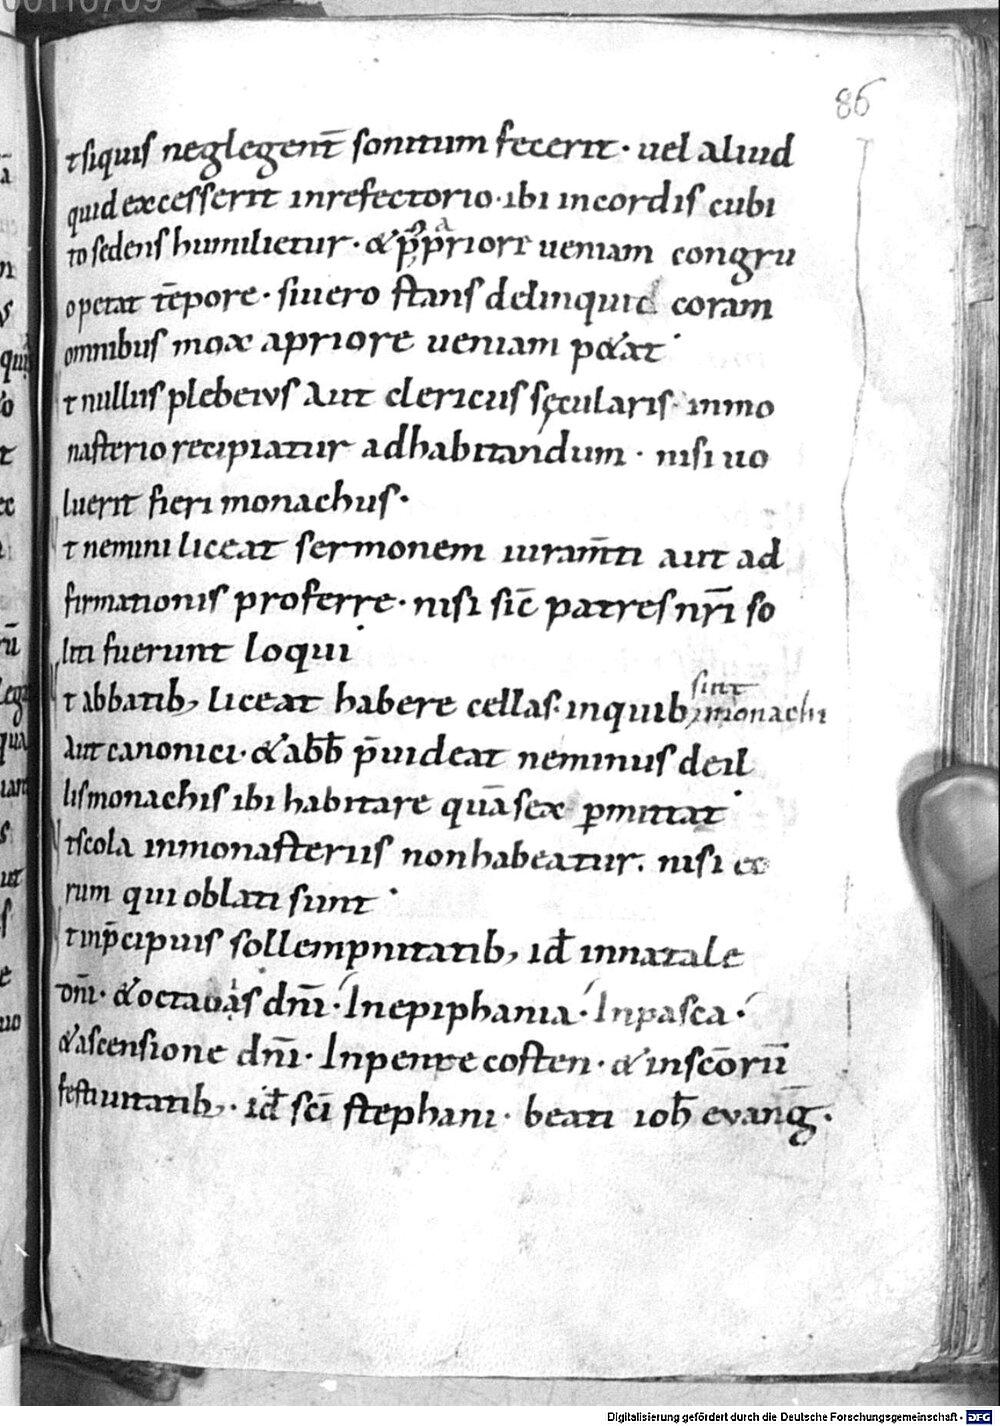 86
tsiquis neglegent̄ sonitum fecerit · uel aliud
quid excesserit inrefectorio · ibi incordis cubi
to sedens humilietur · & priore ueniam congru
o petat tēpore · siuero stans delinquid coram
omnibus mox apriore ueniam p&at ·
t nullus plebeius aut clericus sęcularis · inmo
nasterio recipiatur adhabitandum · nisi uo
luerit fieri monachus ·
t nemini liceat sermonem iuram̄ti aut ad
firmationis proferre · nisi sic̄ patres nr̄i so
liti fuerunt loqui ·
sint
t abbatib; liceat habere cellas · inquib; monachi
aut canonici · & abb̄ p̄uideat neminus deil
lis monachis ibi habitare quā sex ꝑmittat ·
tscola inmonasteriis non habeatur · nisi eo
rum qui oblati sunt ·
t inp̄cipuis sollempnitatib; id̄ innatale
dn̄i · & octauas dn̄i · In epiphania · In pasca ·
& ascensione dn̄i · In pente costen · & inscōrū
festiuitatib; · id̄ sc̄i stephani · beati ioh̄ evanḡ ·
Digitalisierung gefördert durch die Deutsche Forschungsgemeinschaft - DFG